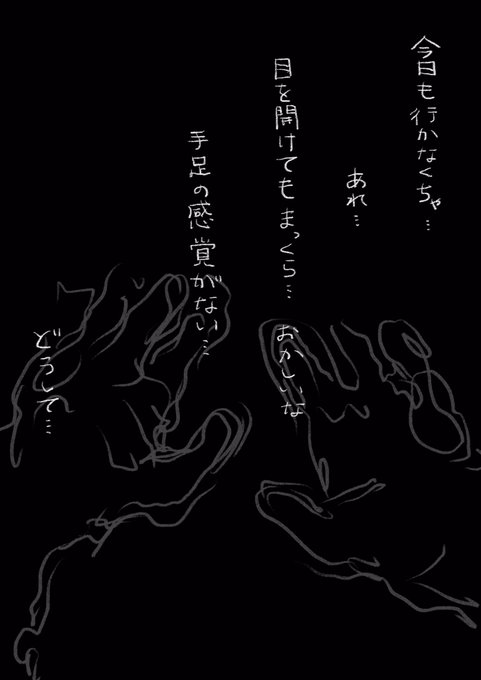 今日も行かなくちゃ…
あれ…
目を開けてもまっくら… おかしいな
手足の感覚がない…
どうして…